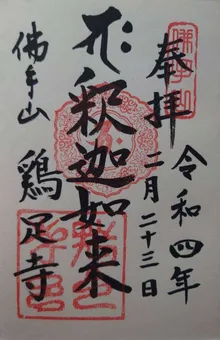 奉拝
令和四年
二月二十三日
釋迦如来
佛手山
鶏足寺